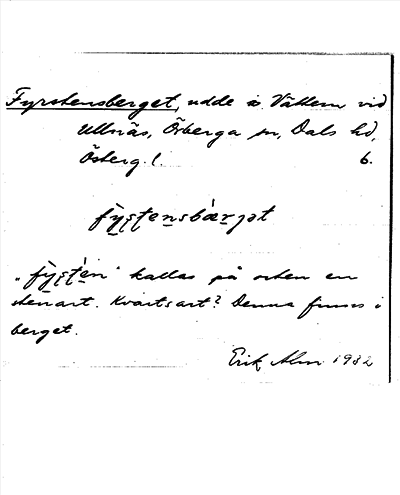 Fyrstensberget, udde i Vättern vid
Ullnäs, Örberga sn, Dals hd,
Österg. l. 6.
"fy̠s̠t̠èn" kallas på orten en
stenart. Kvartsart? Denna finns i
berget.
Erik Alm 1932